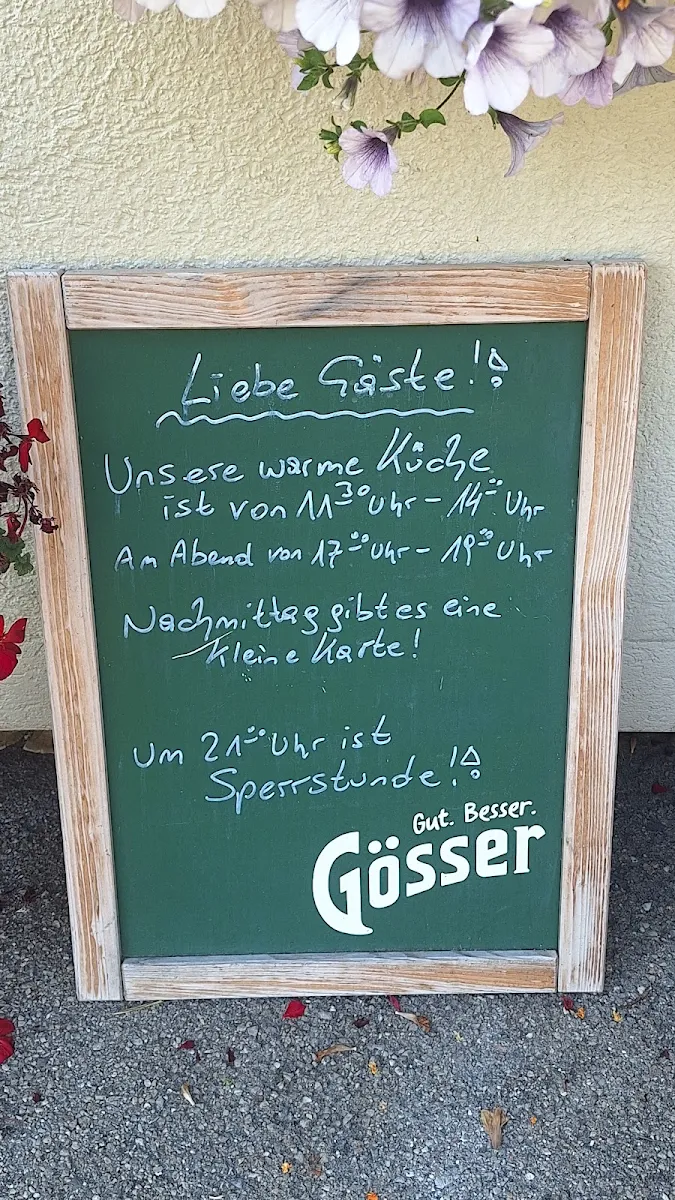 Liebe Gäste!!
Unsere warme Küche
ist von 11³⁰ Uhr - 14⁰⁰ Uhr
Am Abend von 17⁰⁰ Uhr - 19⁰⁰ Uhr
Nachmittag gibt es eine
kleine Karte!
Um 21⁰⁰ Uhr ist
Sperrstunde!!
Gut. Besser.
Gösser